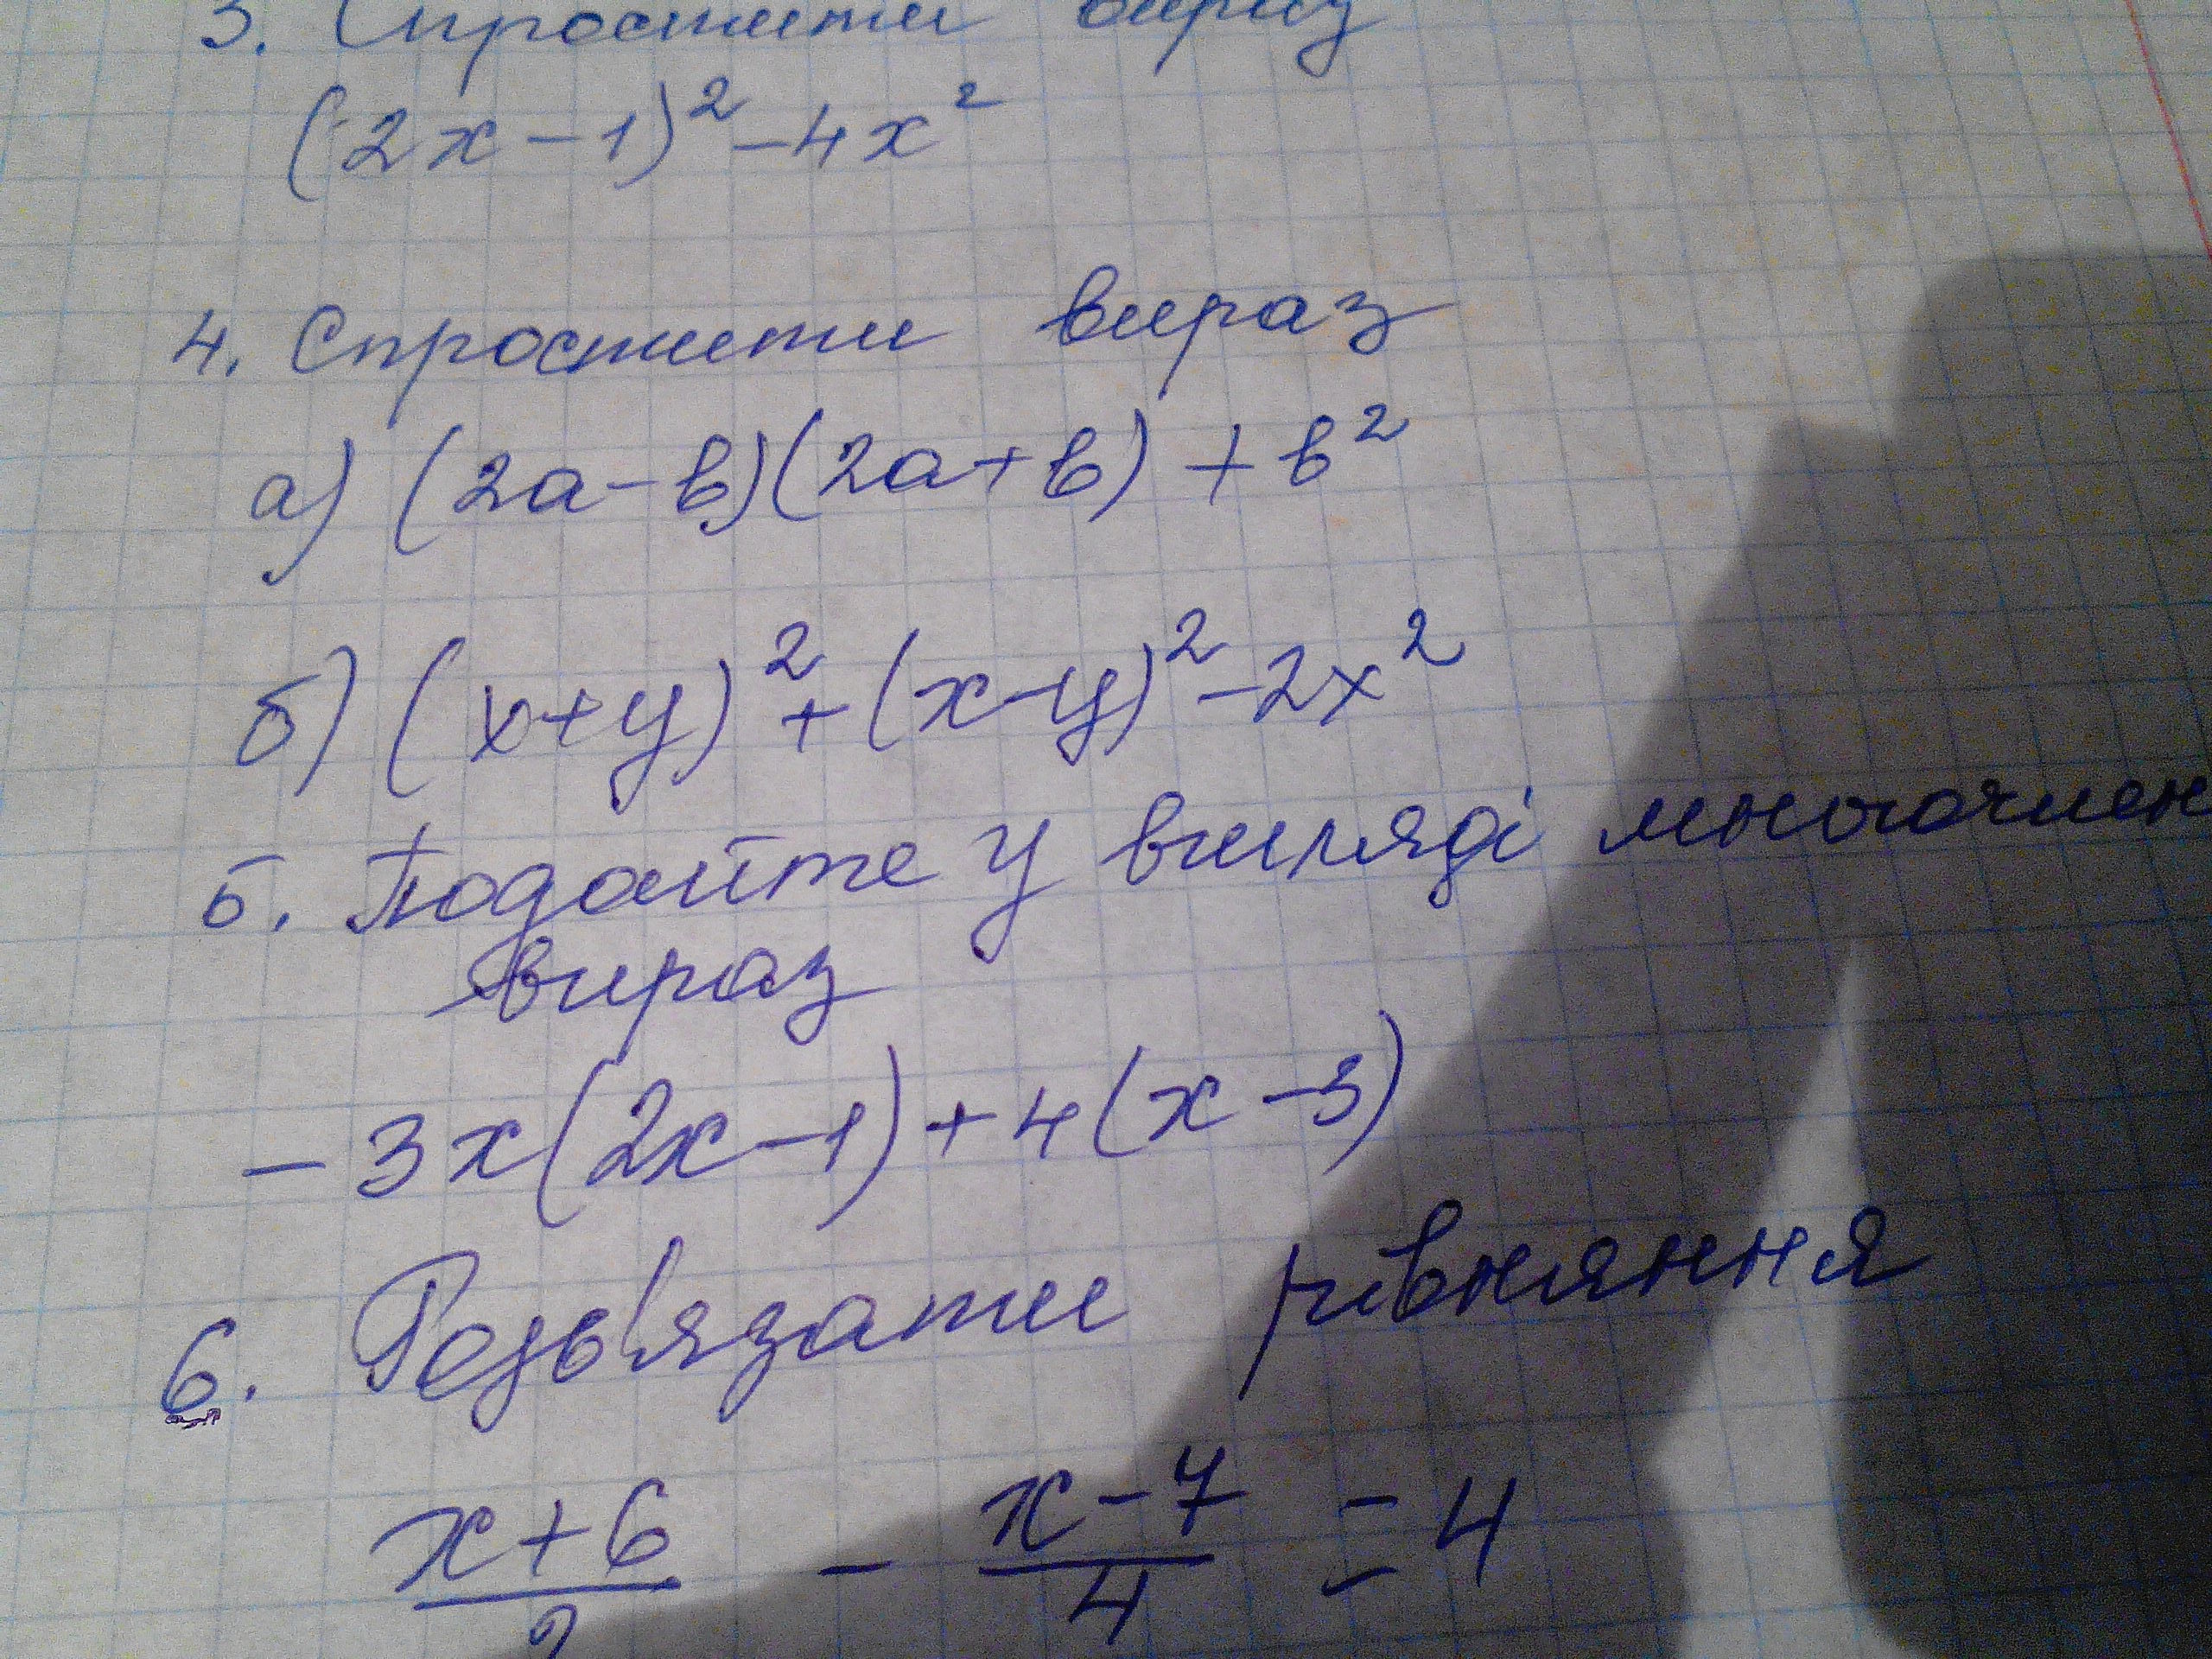 3. Спростити вираз
(2x-1)² - 4x²
4. Спростити вираз
а) (2a-b)(2a+b) + b²
б) (x+y)² + (x-y)² - 2x²
5. Подайте у вигляді многочлен
вираз
- 3x(2x-1) + 4(x-3)
6. Розв'язати рівняння
x+6 / 2 - x-7 / 4 = 4